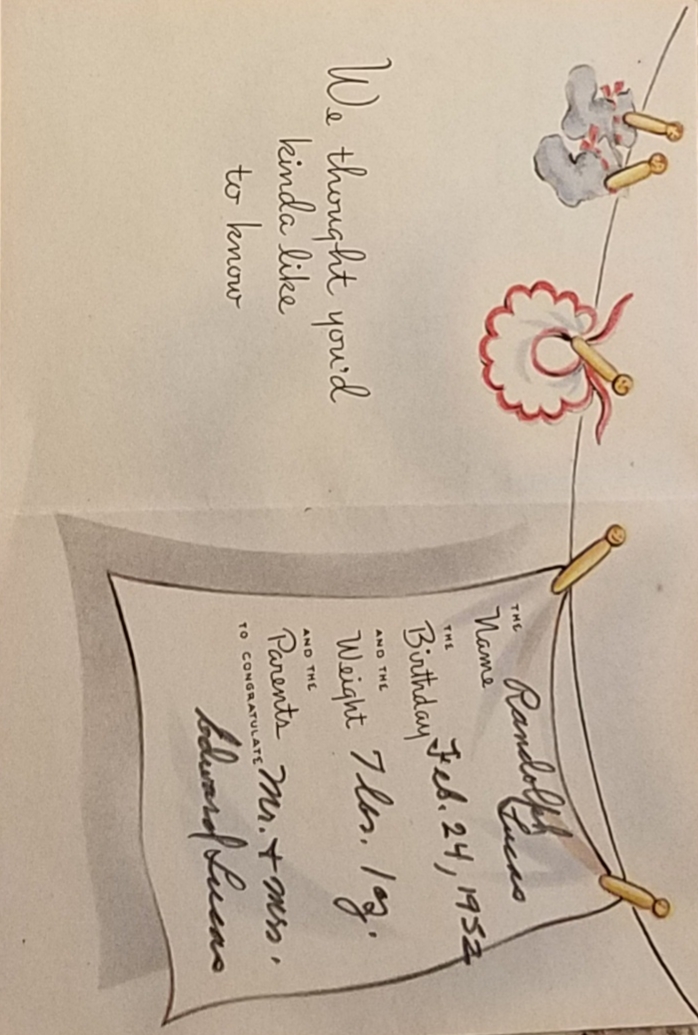 We thought you'd
kinda like
to know
THE
Name Randolph
Lucas
THE
Birthday Feb. 24, 1952
AND THE
Weight 7 lbs. 1 oz.
AND THE
Parents Mr. & Mrs.
TO CONGRATULATE
Edward Lucas